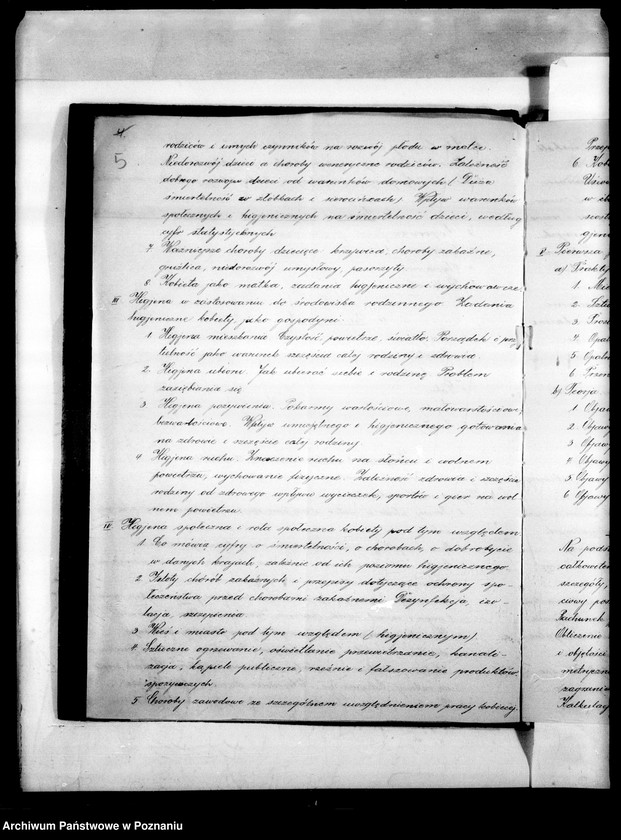 4.
5
rodziców i innych czynników na rozwój płodu w matce.
Niedorozwój dzieci a choroby weneryczne rodziców. Zależność
dobrego rozwoju dzieci od warunków domowych (Duża
śmiertelność w żłóbkach i sierocińcach) Wpływ warunków
społecznych i higjenicznych na śmiertelność dzieci, według
cyfr statystycznych
7. Ważniejsze choroby dziecięce krzywica, choroby zakaźne,
gruźlica, niedorozwój umysłowy, pasorzyty
8. Kobieta jako matka, zadania higjeniczne i wychowawcze.
III Higjena w zastosowaniu do środowiska rodzinnego Zadania
higjeniczne kobiety jako gospodyni.
1. Higjena mieszkania Czystość powietrze, światło. Porządek i przy-
tulność jako warunek szczęścia całej rodziny i zdrowia.
2. Higjena ubioru. Jak ubierać siebie i rodzinę Problem
zaziębiania się
3. Higjena pożywienia. Pokarmy wartościowe, małowartościowe,
bezwartościowe. Wpływ umiejętnego i higjenicznego gotowania
na zdrowie i szczęście całej rodziny
4. Higjena ruchu. Znaczenie ruchu na słońcu i wolnem
powietrzu, wychowanie fizyczne. Zależność zdrowia i szczęścia
rodziny od zdrowego wpływu wycieczek, sportów i gier na wol-
nem powietrzu.
IV Higjena społeczna i rola społeczna kobiety pod tym względem
1. Co mówią cyfry o śmiertelności, o chorobach, o dobrobycie
w danych krajach, zależnie od ich poziomu higjenicznego.
2. Istoty chorób zakaźnych i przepisy dotyczące ochrony spo-
łeczeństwa przed chorobami zakaźnemi Dezynfekcja, izo-
lacja, szczepienia.
3. Wieś i miasto pod tym względem (higjenicznym)
4. Sztuczne ogrzewanie, oświetlanie przewietrzanie, kanali-
zacja, kąpiele publiczne, rzeźnie i fałszowanie produktów
spożywczych.
5. Choroby zawodowe ze szczególnem uwzględnieniem pracy kobiecej
6. Kobi
a)
1.
2.
3.
4.
5.
6.
b) Teorja
1. Objaw
2. Objawy
3. Objawy
4. Objawy
5. Objawy
6. Objawy
Na pods
całkowitem
szczegóły,
Rachunek
Obliczenie
i objętości
metryczna
Kalkulacj
Archiwum Państwowe w Poznaniu